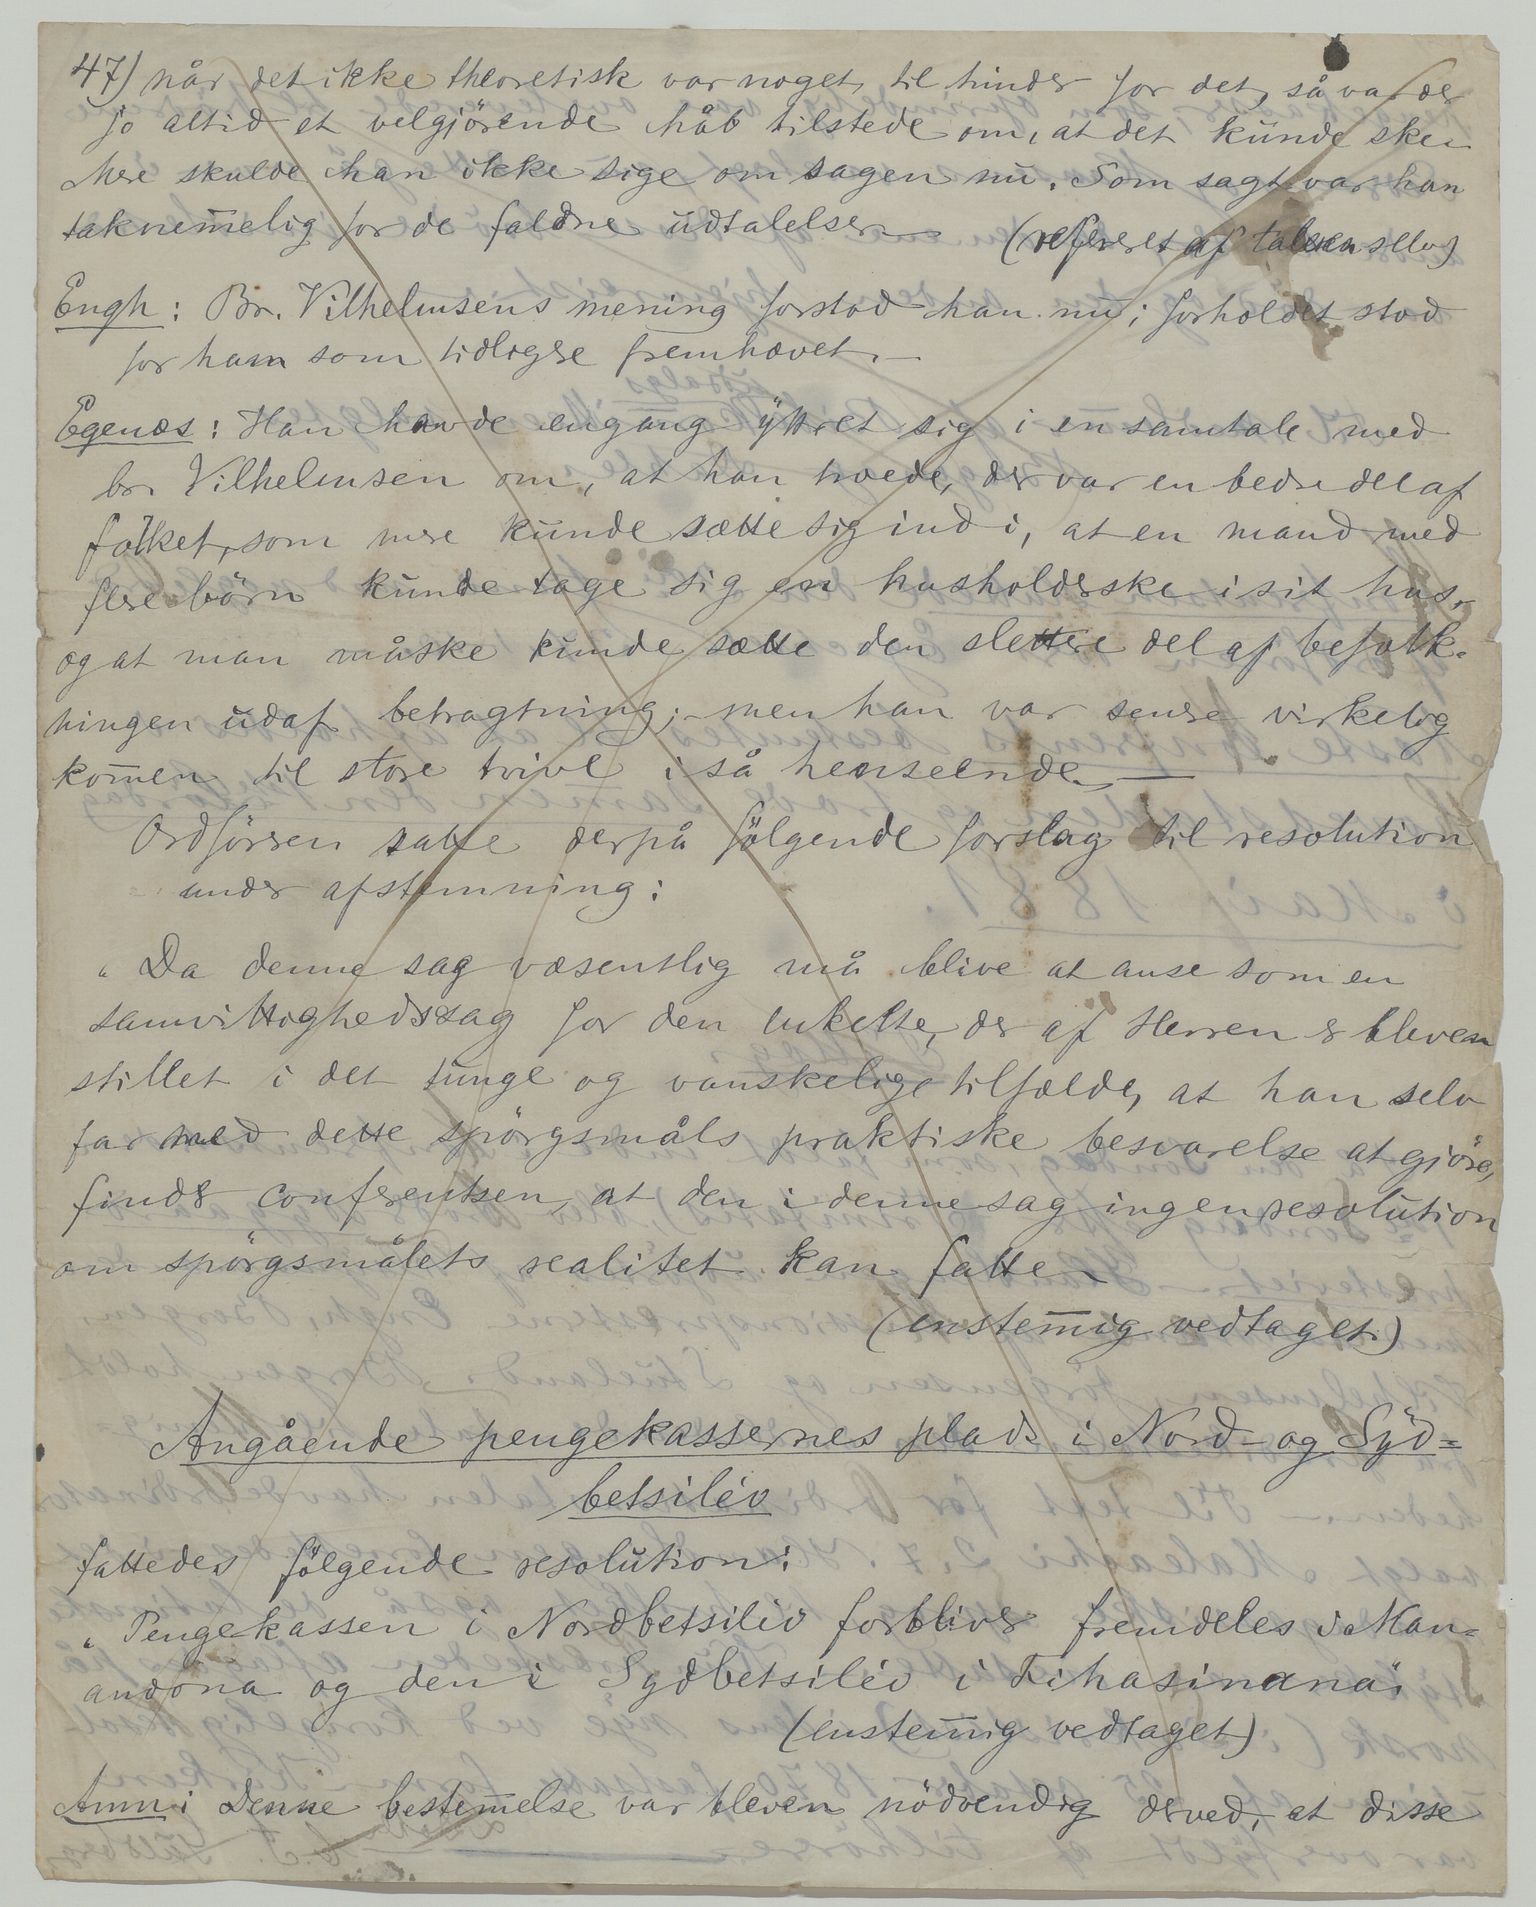 47) når det ikke theoretisk var noget til hinder for det, så var der
jo altid et velgjörende håb tilstede om, at det kunde ske.
Mere skulde han ikke sige om sagen nu. Som sagt var han
taknem̅elig for de faldne udtalelser. (refereret af taleren selv)
Engh: Br. Vilhelmsens mening forstod han nu; forholdet stod
for ham som tidligere fremhævet. —
Egenæs: Han havde engang yttret sig i en samtale med
br. Vilhelmsen om, at han troede, der var en bedre del af
folket, som mere kunde sætte sig ind i, at en mand med
flere börn kunde tage sig en husholderske i sit hus,
og at man måske kunde sætte den slettere del af befolk-
ningen udaf betragtning; men han var senere virkelig
kom̅en til store tvivl i så henseende. —
Ordföreren satte derpå fölgende forslag til resolution
under afstemning:
„Da denne sag væsentlig må blive at anse som en
samvittighedssag for den enkelte, der af Herren er bleven
stillet i det tunge og vanskelige tilfælde, at han selv
får med dette spörgsmåls praktiske besvarelse at gjöre,
finder Conferentsen, at den i denne sag ingen resolution
om spörgsmålets realitet kan fatte.
(enstem̅ig vedtaget.)
Angående pengekassernes plads i Nord- og Syd=
betsiléo
fattedes fölgende resolution:
„Pengekassen i Nordbetsiléo forbliver fremdeles i Man=
andóna og den i Sydbetsiléo i Fihasinana“.
(enstem̅ig vedtaget)
Anm: Denne bestem̅else var bleven nödvendig derved, at disse